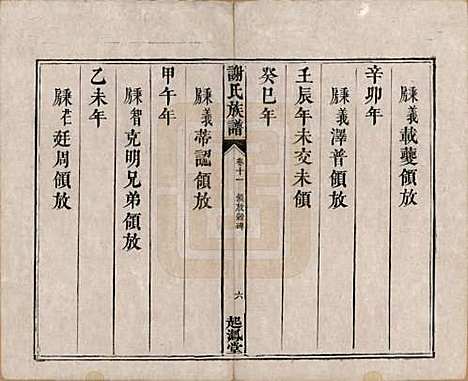 牒義載夔領放
辛卯年
牒義澤普領放
壬辰年未交未領
癸巳年
謝氏族譜
卷十一
領放
六
起鳳堂
牒義蒂認領放
甲午年
牒智克明兄弟領放
乙未年
牒君廷周領放